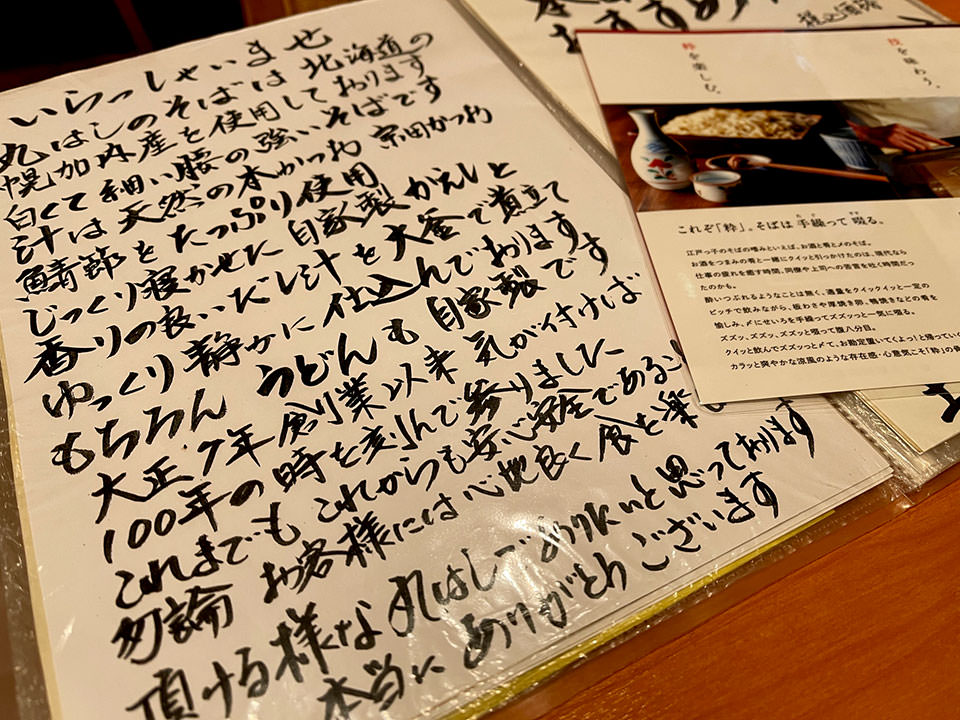 いらっしゃいませ
丸はしのそばは北海道の
幌加内産を使用しております
白くて細い腰の強いそばです
汁は天然の本かつお 宗田かつお
鯖節をたっぷり使用
じっくり寝かせた自家製かえしと
香りの良いだし汁を大釜で煮立て
ゆっくり静かに仕込んでおります
もちろん うどんも自家製です
大正7年創業以来 気が付けば
100年の時を刻んで参りました
これまでも これからも安心安全であるこ
勿論 お客様には心地良く食を楽
頂ける様な丸はしでありたいと思っております
本当にありがとうございます
粋を楽しむ。
技を味わう。
これぞ「粋」。そばは手繰って啜る。
江戸っ子のそばの嗜みといえば、お酒と肴と〆のそば。
お酒をつまみの肴と一緒にクイッと引っかけたのは、現代なら
仕事の疲れを癒す時間、同僚や上司への苦言を吐く時間だっ
たのかも。
酔いつぶれるようなことは無く、適量をクイックイッと一定の
ピッチで飲みながら、板わさや厚焼き卵、鴨焼きなどの肴を
愉しみ、〆にせいろを手繰ってズズッっと一気に啜る。
ズズッ、ズズッ、ズズッと啜って腹八分目。
クイッと飲んでズズッっと〆て、お勘定置いてくよっ！と帰ってい
カラッと爽やかな涼風のような存在感・心意気こそ「粋」の